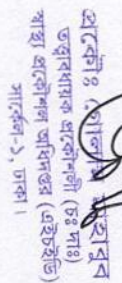 প্রকৌঃ
তত্ত্বাবধায়ক প্রকৌশলী (চঃ দাঃ)
স্বাস্থ্য প্রকৌশল অধিদপ্তর (এইচইডি)
সার্কেল-১, ঢাকা।